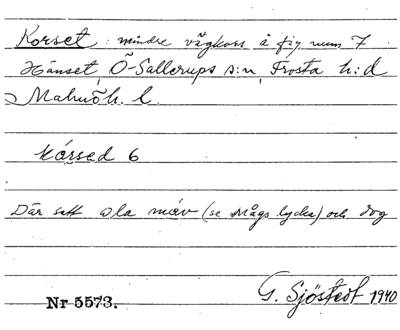 Korset : mindre vägkors å fig num 7
Hänset, Ö-Sallerups s:n, Frosta h:d
Malmöh. l.
kórsed 6
Där satt Ola máv (se Mågs lycka) och dog
Nr 5573. G. Sjöstedt 1940